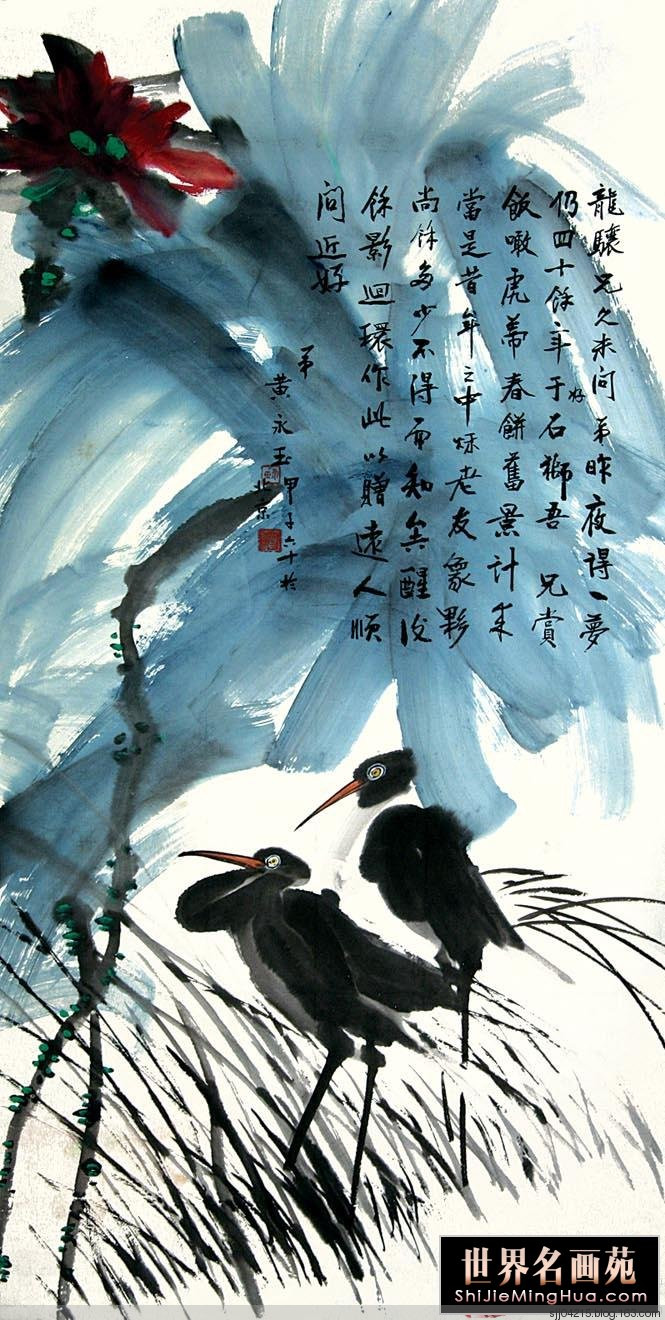 龍驤兄久未问弟昨夜得一夢
仍四十餘年于石獅吾兄赏
好
飯噉虎蒂春餅舊景計來
當是昔年之中秌老友彖夥
尚餘多少不得而知矣醒後
餘影迴環作此以贈遠人順
问近好
弟
黄永玉甲子六十於
北京
世界名画苑
ShiJieMingHua.com
sjj04215.blog.163.com